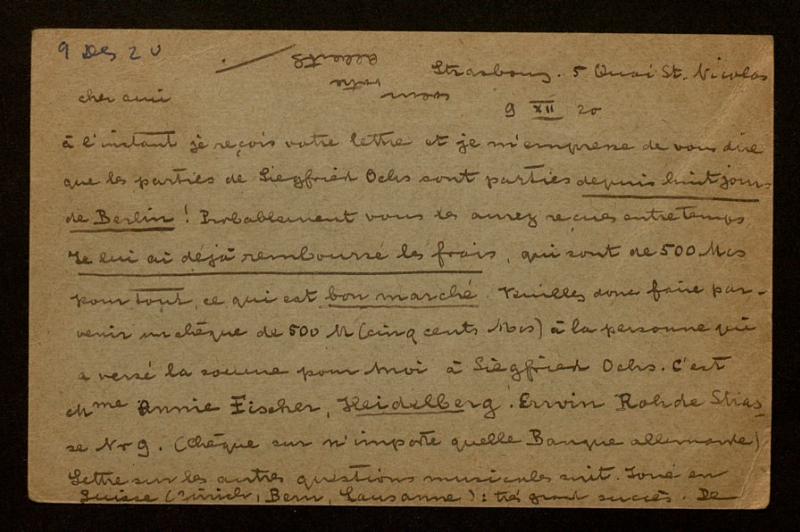 9 Des 20
Strasbourg. 5 Quai St. Nicolas
9 XII 20
cher ami
à l'instant je reçois votre lettre et je m'empresse de vous dire
que les parties de Siegfried Ochs sont parties depuis huit jours
de Berlin! Probablement vous les aurez reçues entre temps
Je lui ai déjà remboursé les frais, qui sont de 500 Mcs
pour tout, ce qui est bon marché. Veuillez donc faire par-
venir un chèque de 500 M (cinq cents Mcs) à la personne qui
a versé la somme pour moi à Siegfried Ochs. C'est
Mme Annie Fischer, Heidelberg. Erwin Rohde Stras-
se Nr 9. (Chèque sur n'importe quelle Banque allemande)
Lettre sur les autres questions musicales suit. Joué en
Suisse (Zürich, Bern, Lausanne): très grand succès. De